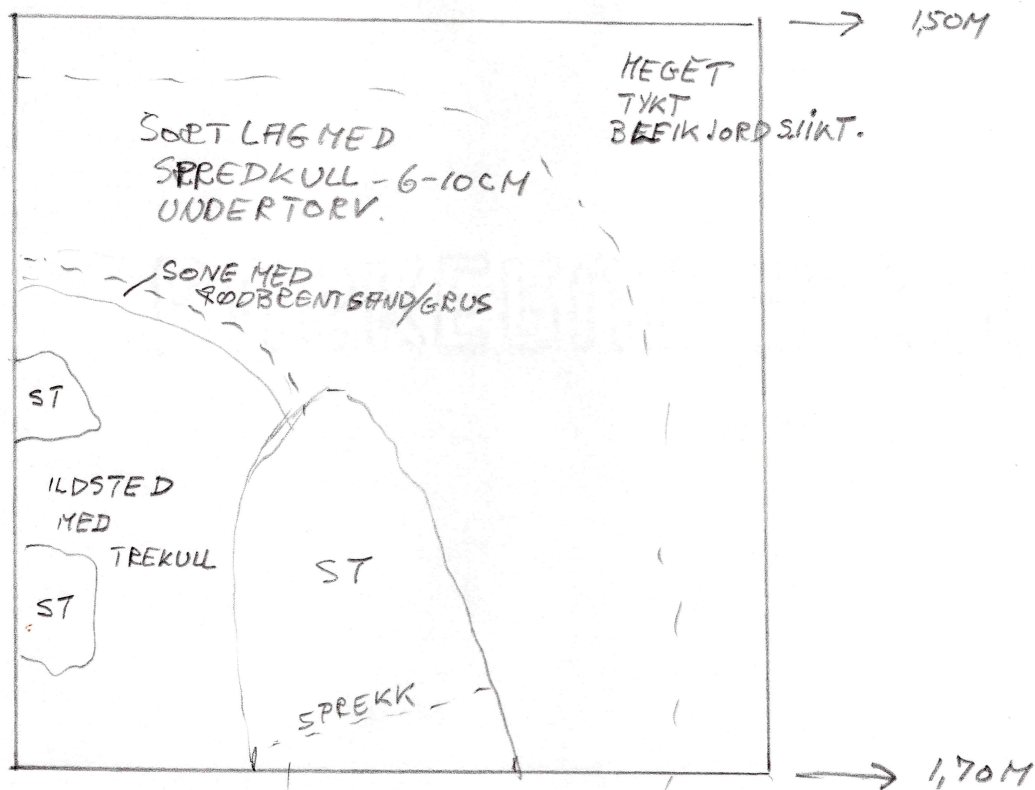 1,50M
MEGET
TYKT
BLEIKJORDSJIKT.
SORT LAG MED
SPREDKULL - 6-10CM
UNDER TORV.
SONE MED
RØDBRENT SAND/GRUS
ST
ILDSTED
MED
TREKULL
ST
ST
SPREKK
1,70M